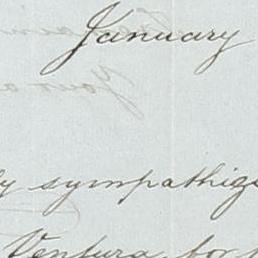 January
y sympathize
Ventura, for